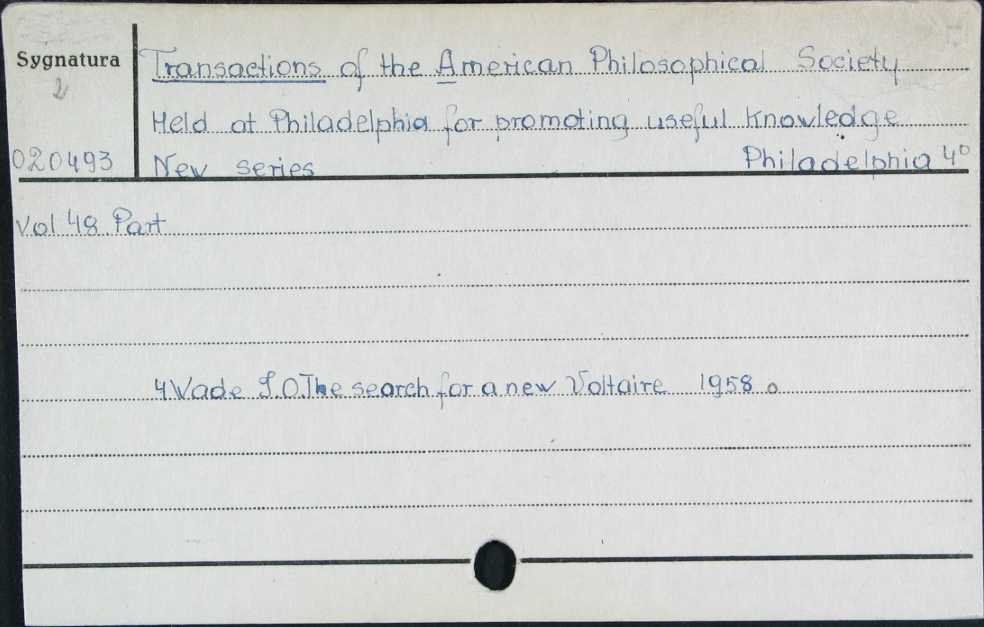 Sygnatura
2
020493
Transactions of the American Philosophical Society
Held at Philadelphia for promoting useful knowledge
New series Philadelphia 4°
Vol 48 Part
4 Wade I.O. The search for a new Voltaire 1958 o